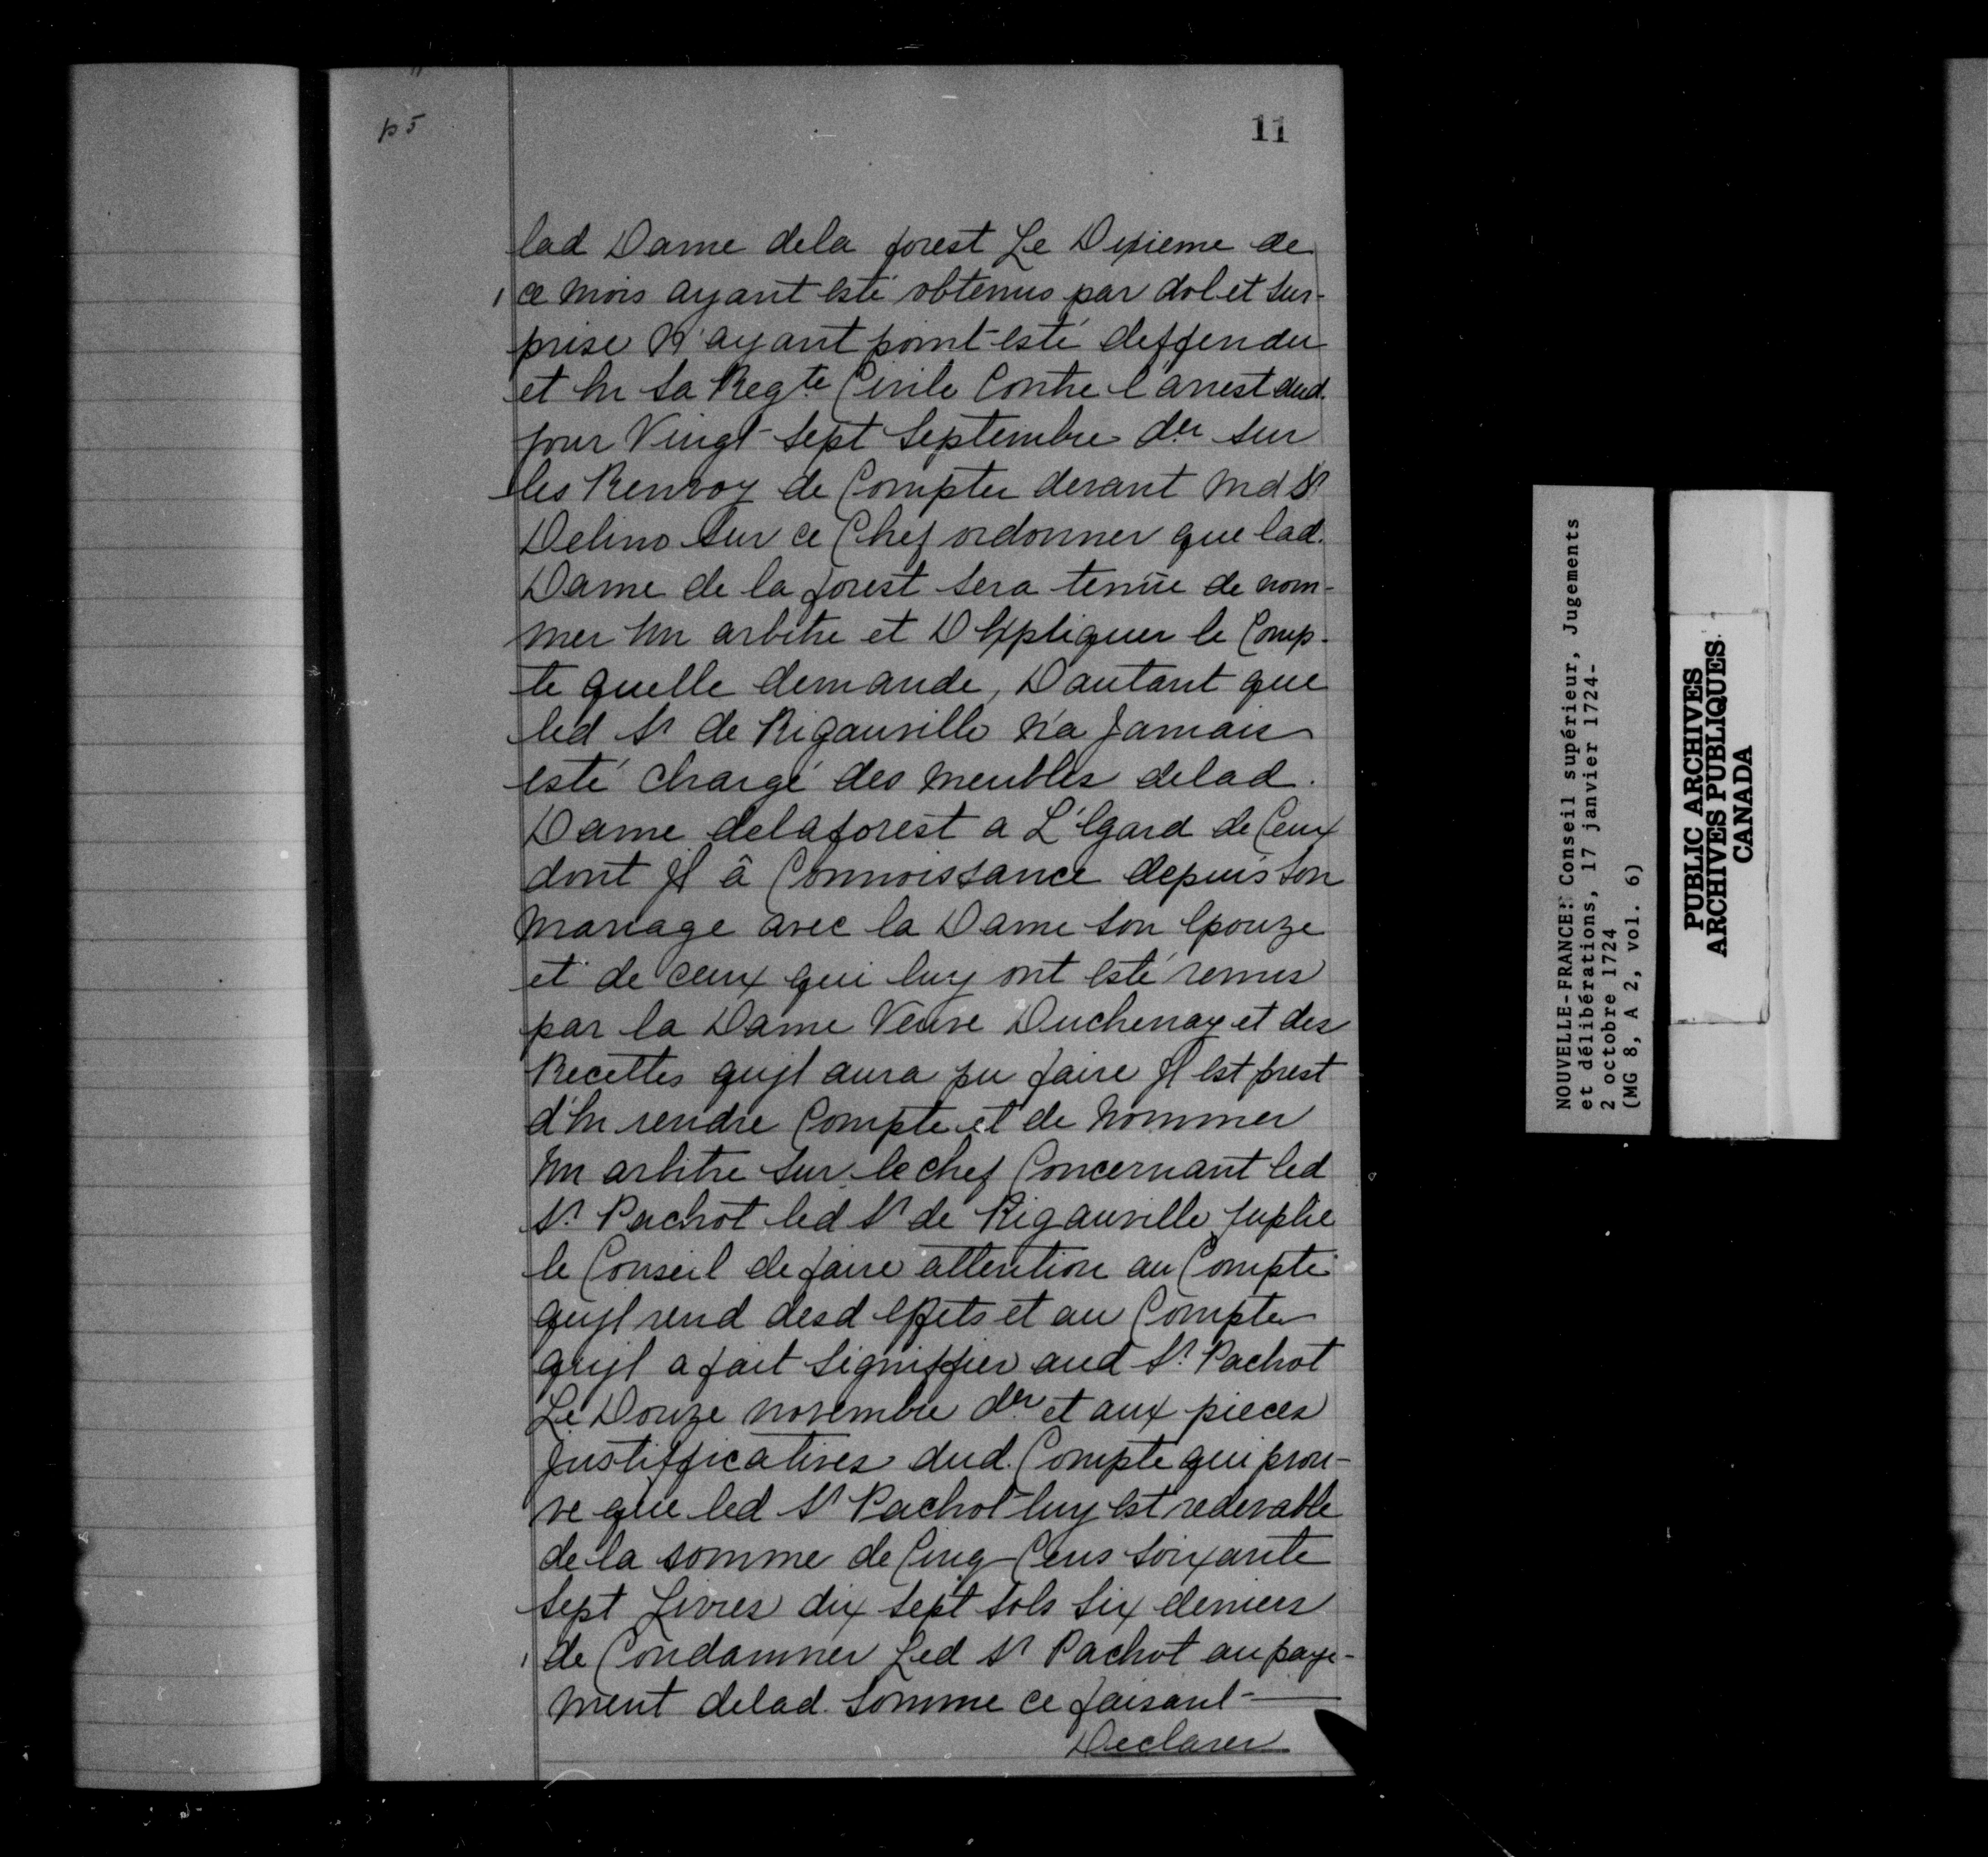 p 5
11
lad Dame dela forest Le Dixieme de
ce mois ayant esté obtenus par dol et sur-
prise N'ayant point esté deffendu
et En sa Reqte Civile Contre l'arrest dud.
jour Vingt-sept Septembre der sur
les Renvoy de Compter devant Md Sr
Delino sur ce Chef ordonner que lad.
Dame de la forest sera tenüe de nom-
mer Un arbitre et D'Expliquer le Comp-
te quelle demande, Dautant que
led Sr de Rigauville n'a Jamais
esté chargé des meubles delad.
Dame delaforest a L'Egard de Ceux
dont Il â Connoissance depuis son
mariage avec la Dame son Epouze
et de ceux qui luy ont esté remis
par la Dame Veuve Duchenay et des
Recettes qujl aura pu faire Il Est prest
d'En rendre Compte et de Nommer
Un arbitre sur le chef Concernant led
Sr. Pachot led Sr de Rigauville suplie
le Conseil de faire attention au Compte
qujl rend desd Effets et au Compte
qujl a fait signiffier aud Sr. Pachot
Le Douze novembre der et aux pieces
Justifficatives dud. Compte qui prou-
ve que led Sr Pachot luy Est redevable
de la somme de Cinq Cens soixante
sept Livres dix sept sols six deniers
de Condamner Led Sr Pachot au paye-
ment delad. somme ce faisant
Declarer
NOUVELLE-FRANCE: Conseil supérieur, Jugements
et délibérations, 17 janvier 1724-
2 octobre 1724
(MG 8, A 2, vol. 6)
PUBLIC ARCHIVES
ARCHIVES PUBLIQUES
CANADA